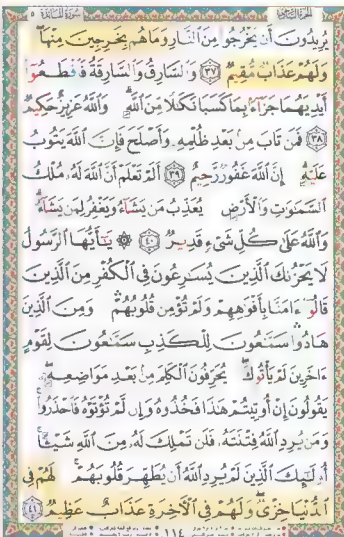 الجزء السادس سورة المائدة ٥
يُرِيدُونَ أَن يَخْرُجُوا۟ مِنَ ٱلنَّارِ وَمَا هُم بِخَٰرِجِينَ مِنْهَا
وَلَهُمْ عَذَابٌ مُّقِيمٌ ٣٧ وَٱلسَّارِقُ وَٱلسَّارِقَةُ فَٱقْطَعُوٓا۟
أَيْدِيَهُمَا جَزَآءًۢ بِمَا كَسَبَا نَكَٰلًا مِّنَ ٱللَّهِ وَٱللَّهُ عَزِيزٌ حَكِيمٌ
٣٨ فَمَن تَابَ مِنۢ بَعْدِ ظُلْمِهِۦ وَأَصْلَحَ فَإِنَّ ٱللَّهَ يَتُوبُ
عَلَيْهِ إِنَّ ٱللَّهَ غَفُورٌ رَّحِيمٌ ٣٩ أَلَمْ تَعْلَمْ أَنَّ ٱللَّهَ لَهُۥ مُلْكُ
ٱلسَّمَٰوَٰتِ وَٱلْأَرْضِ يُعَذِّبُ مَن يَشَآءُ وَيَغْفِرُ لِمَن يَشَآءُ
وَٱللَّهُ عَلَىٰ كُلِّ شَىْءٍ قَدِيرٌ ٤٠ ۞ يَٰٓأَيُّهَا ٱلرَّسُولُ
لَا يَحْزُنكَ ٱلَّذِينَ يُسَٰرِعُونَ فِى ٱلْكُفْرِ مِنَ ٱلَّذِينَ
قَالُوٓا۟ ءَامَنَّا بِأَفْوَٰهِهِمْ وَلَمْ تُؤْمِن قُلُوبُهُمْ وَمِنَ ٱلَّذِينَ
هَادُوا۟ سَمَّٰعُونَ لِلْكَذِبِ سَمَّٰعُونَ لِقَوْمٍ
ءَاخَرِينَ لَمْ يَأْتُوكَ يُحَرِّفُونَ ٱلْكَلِمَ مِنۢ بَعْدِ مَوَاضِعِهِۦ
يَقُولُونَ إِنْ أُوتِيتُمْ هَٰذَا فَخُذُوهُ وَإِن لَّمْ تُؤْتَوْهُ فَٱحْذَرُوا۟
وَمَن يُرِدِ ٱللَّهُ فِتْنَتَهُۥ فَلَن تَمْلِكَ لَهُۥ مِنَ ٱللَّهِ شَيْـًٔا
أُو۟لَٰٓئِكَ ٱلَّذِينَ لَمْ يُرِدِ ٱللَّهُ أَن يُطَهِّرَ قُلُوبَهُمْ لَهُمْ فِى
ٱلدُّنْيَا خِزْىٌ وَلَهُمْ فِى ٱلْءَاخِرَةِ عَذَابٌ عَظِيمٌ ٤١
١١٤